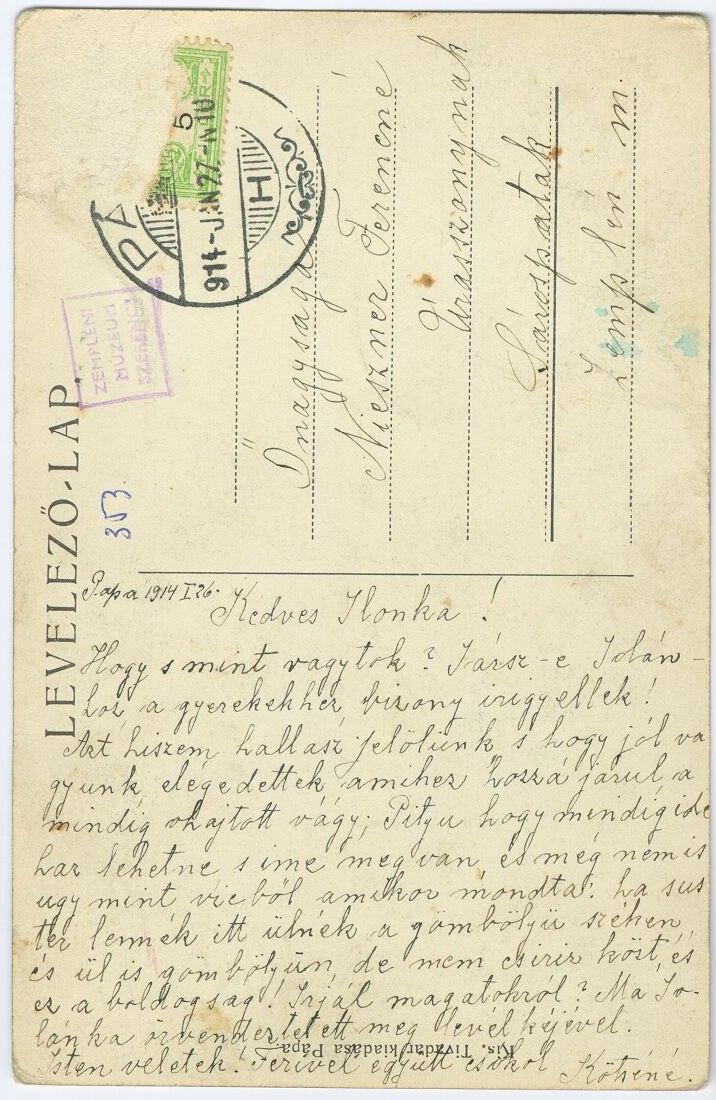 LEVELEZŐ-LAP.
5
PÁ
914-JAN.27.-N10
H
ZEMPLÉNI
MÚZEUM
SZERENCS
353
Őnagysága
Nieszner Ferencné
Úrasszonynak
Sárospatak
Zemplén m.
Papa 1914 I 26.
Kedves Ilonka!
Hogy s mint vagytok? Jársz-e Jolán-
hoz a gyerekekhez bizony irigyellek!
Azt hiszem hallasz felölünk s hogy jól va
gyunk elégedettek amihez hozzá járul a
mindig ohajtott vágy; Pityu hogy mindig ide
haz lehetne s ime meg van és még nem is
ugy mint vicből amikor mondta: ha sus
ter lennék itt ülnék a gömbölyü széken
és ül is gömbölyün, de nem csiriz közt, és
ez a boldogság! Irjál magatokról? Ma Jo-
lánka örvendeztetett meg levélkéjével.
Isten veletek! Ferivel együtt csokol
Kis Tivadar kiadása Pápa